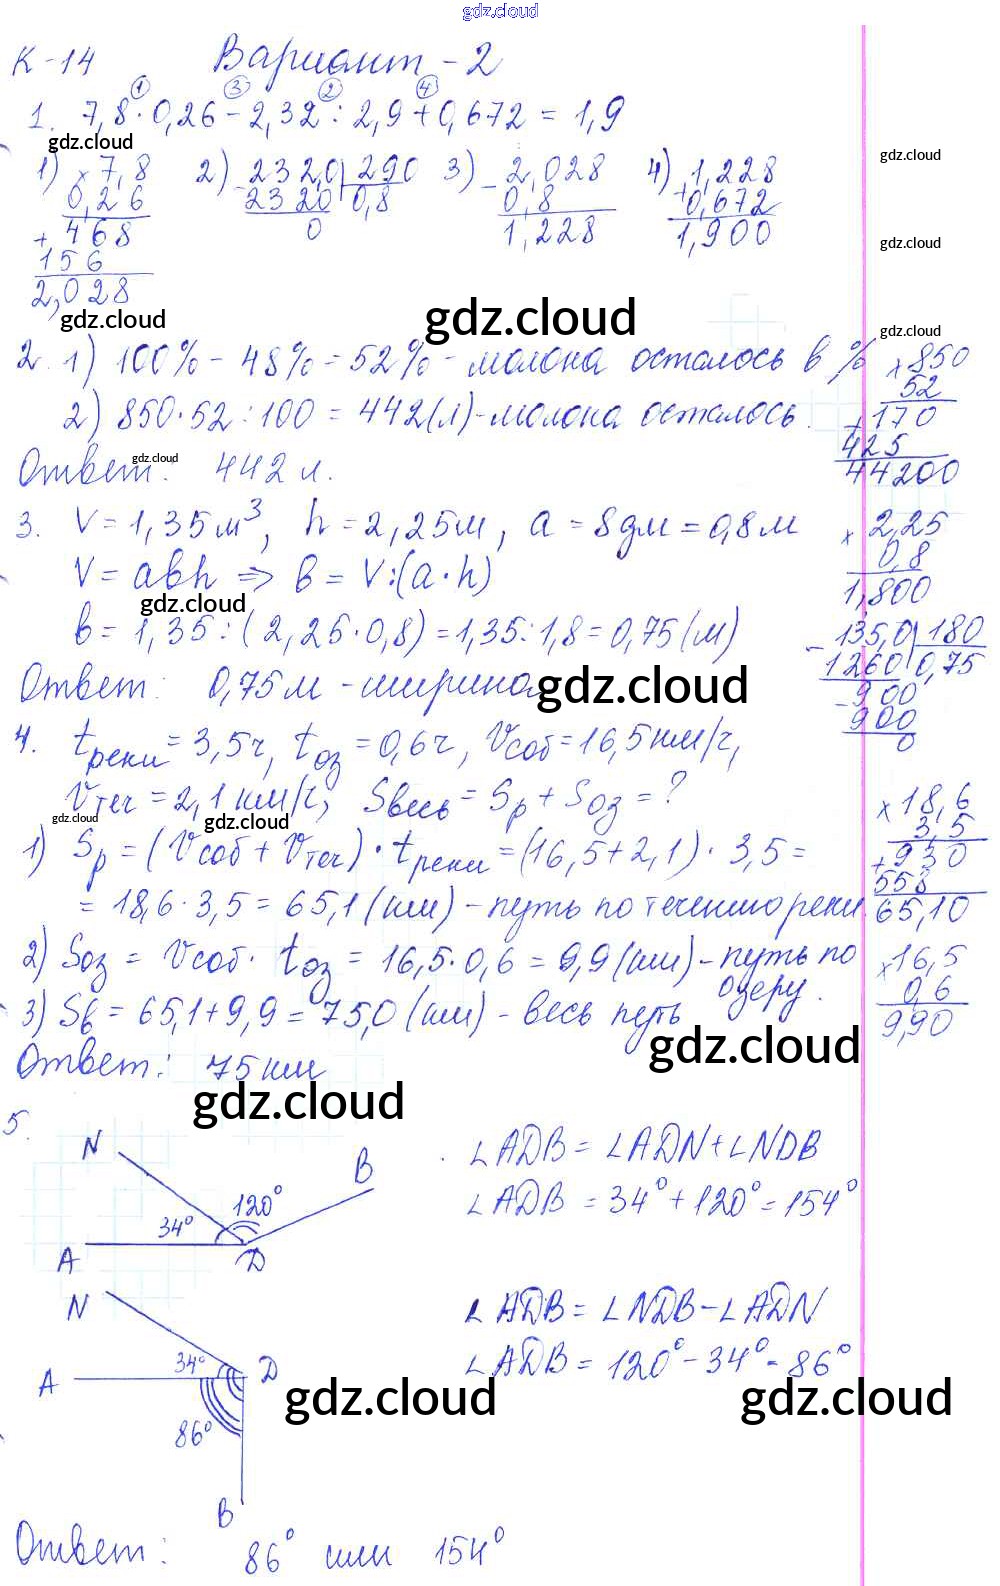 gdz.cloud
К-14 Вариант-2
1 3 2 4
1. 7,8 · 0,26 - 2,32 : 2,9 + 0,672 = 1,9
gdz.cloud gdz.cloud
1) × 7,8 2) - 232,0 290 3) - 2,028 4) + 1,228
0,26 2320 0,8 0,8 0,672
+ 468 0 1,228 1,900
156 gdz.cloud
2,028
gdz.cloud gdz.cloud gdz.cloud
2. 1) 100% - 48% = 52% - молока осталось в % × 850
52
2) 850·52 : 100 = 442(л) - молока осталось. + 170
425
Ответ: 442 л. 44200
gdz.cloud
3. V = 1,35 м³, h = 2,25м, a = 8дм = 0,8м × 2,25
0,8
V = abh => b = V:(a·h) 1,800
gdz.cloud
b = 1,35 : (2,25·0,8) = 1,35 : 1,8 = 0,75 (м) - 135,0 180
1260 0,75
Ответ: 0,75м - ширина - 900
gdz.cloud 900
0
4. t реки = 3,5ч, t оз = 0,6ч, V соб = 16,5 км/ч,
V теч = 2,1 км/ч, S весь = S р + S оз = ? × 18,6
gdz.cloud gdz.cloud 3,5
1) S р = (V соб + V теч) · t реки = (16,5 + 2,1) · 3,5 = + 930
558
= 18,6 · 3,5 = 65,1 (км) - путь по течению реки. 65,10
2) S оз = V соб · t оз = 16,5 · 0,6 = 9,9 (км) - путь по × 16,5
озеру. 0,6
3) S в = 65,1 + 9,9 = 75,0 (км) - весь путь 9,90
gdz.cloud
Ответ: 75 км
gdz.cloud
5.
N B ∠ADB = ∠ADN + ∠NDB
34° 120° ∠ADB = 34° + 120° = 154°
A D
N ∠ADB = ∠NDB - ∠ADN
34° ∠ADB = 120° - 34° = 86°
A D
gdz.cloud gdz.cloud
86°
B
Ответ: 86° или 154°